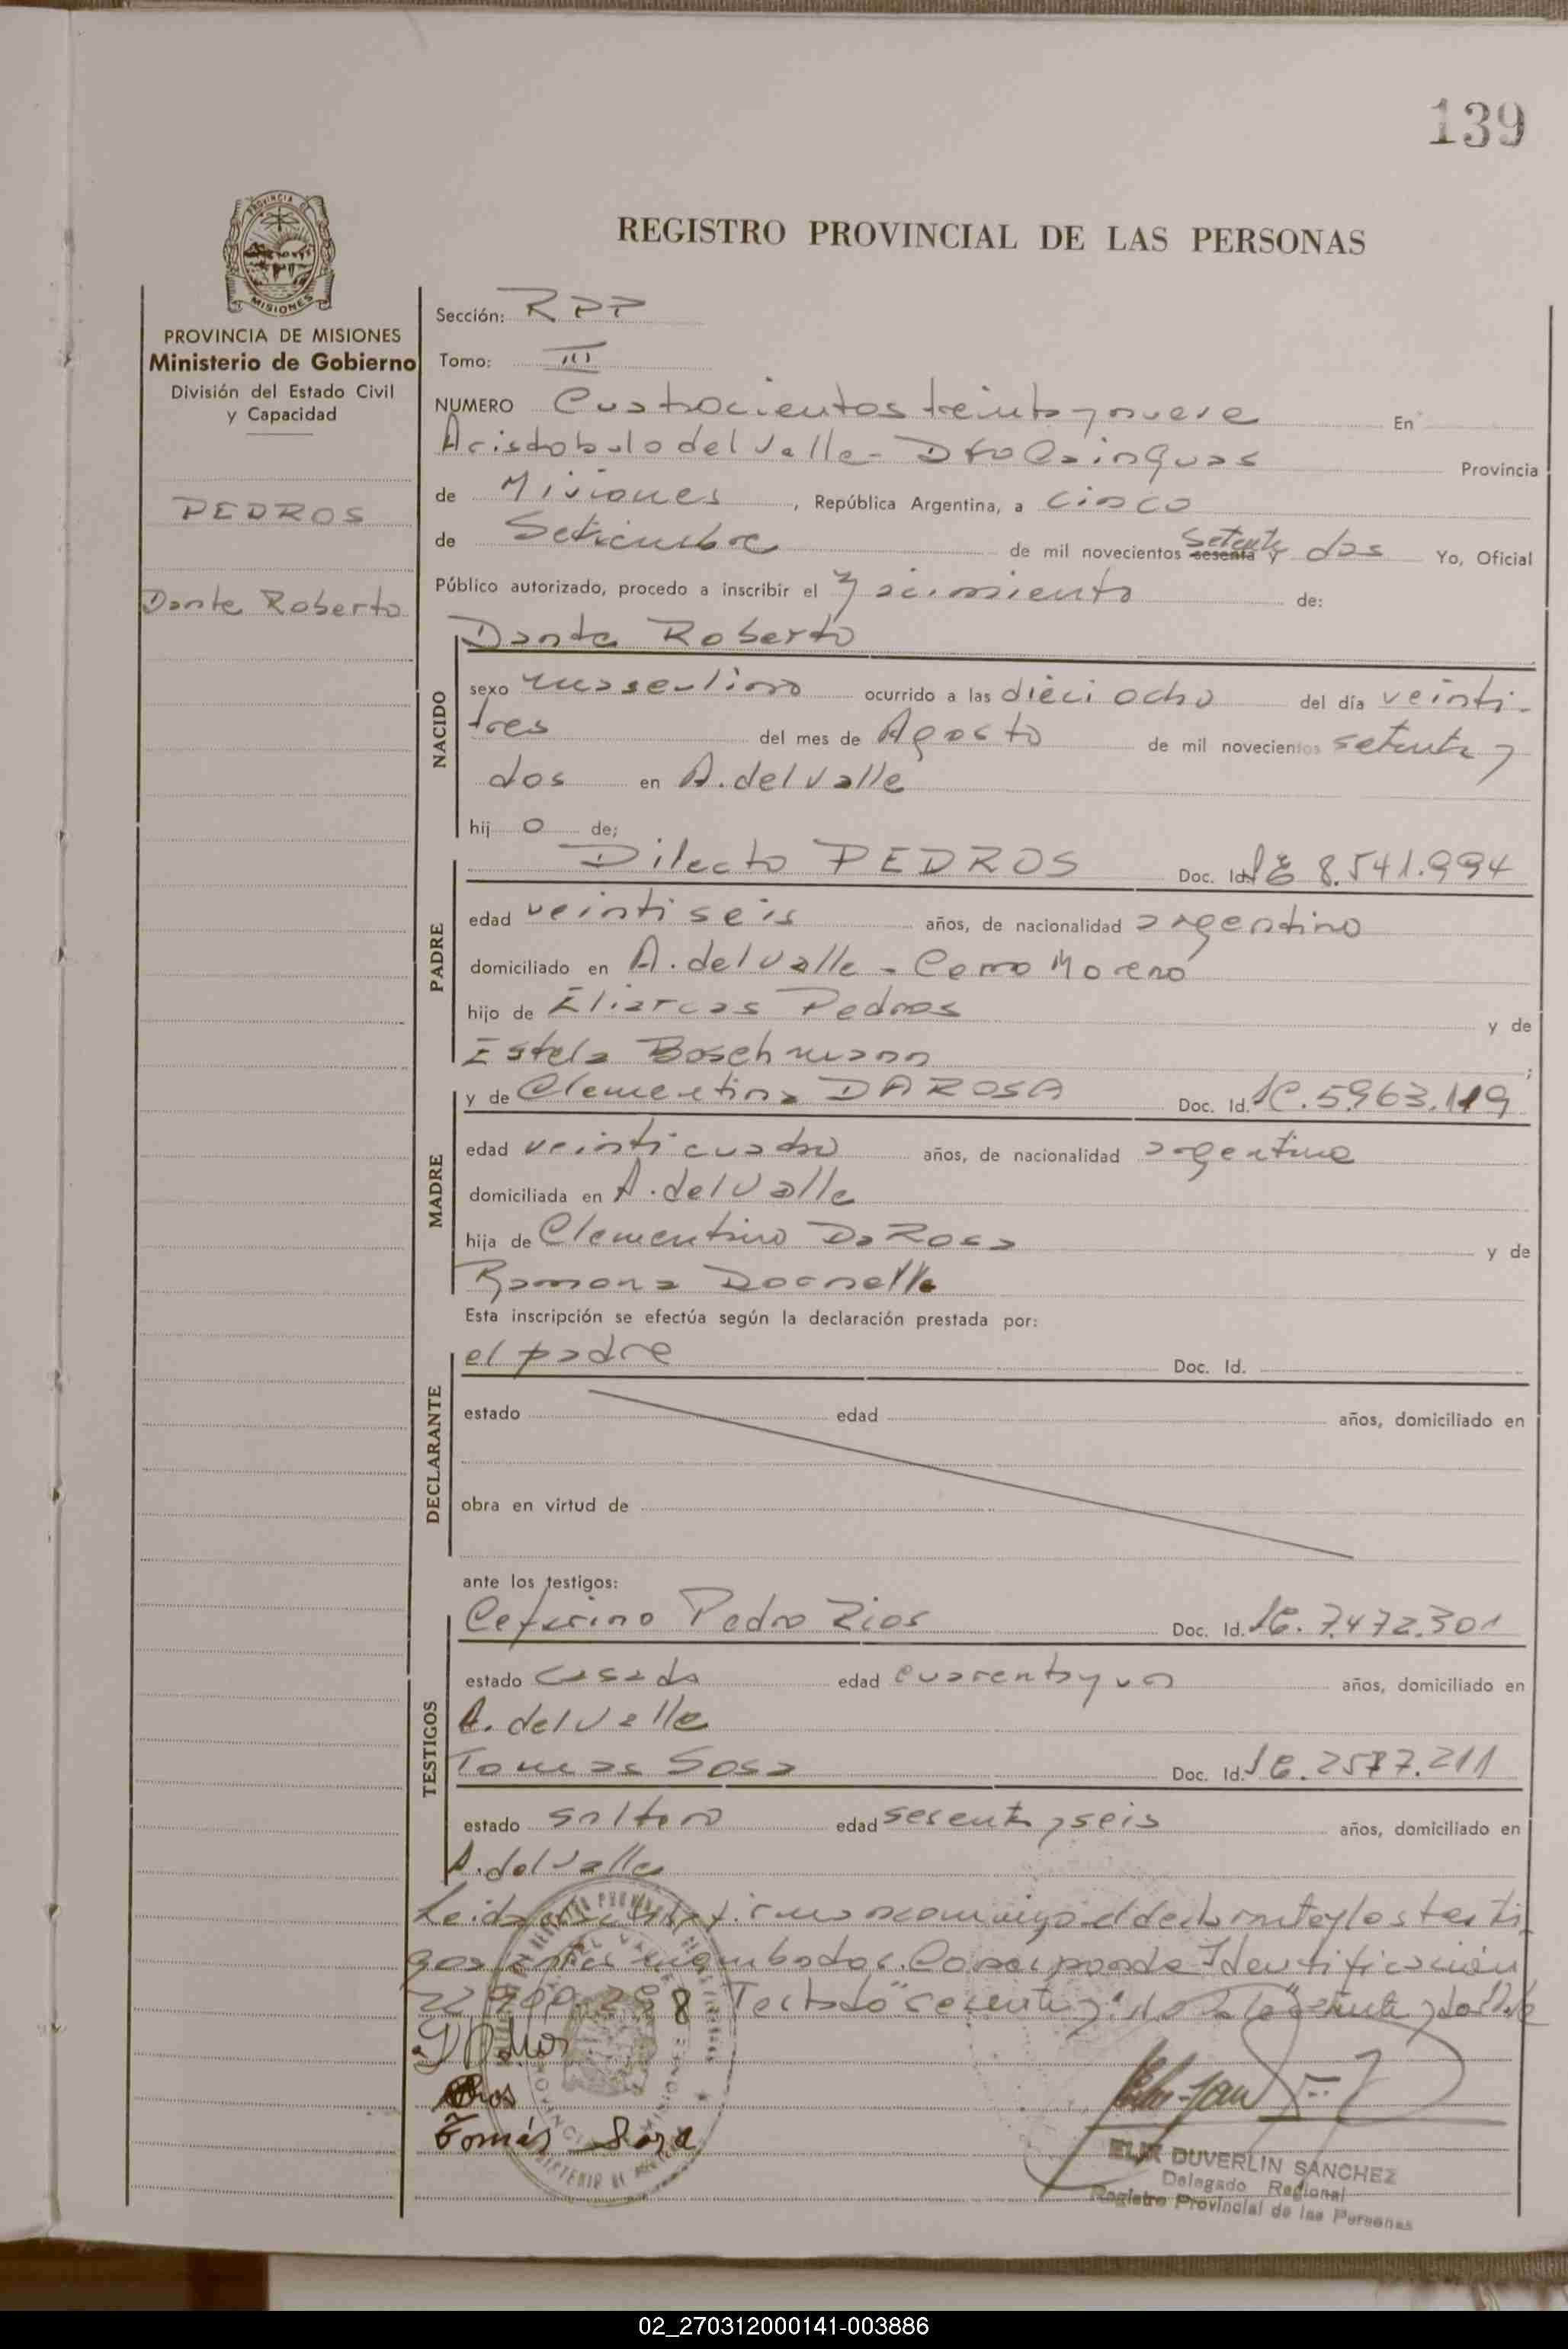 139
PROVINCIA DE
MISIONES
REGISTRO PROVINCIAL DE LAS PERSONAS
PROVINCIA DE MISIONES
Ministerio de Gobierno
División del Estado Civil
y Capacidad
PEDROS
Dante Roberto
Sección: RPP
Tomo: III
NUMERO Cuatrocientos treinta y nueve En
Aristobulo del Valle - Dto Cainguas Provincia
de Misiones, República Argentina, a cinco
de Setiembre de mil novecientos sesenta setenta y dos Yo, Oficial
Público autorizado, procedo a inscribir el Nacimiento de:
NACIDO
Dante Roberto
sexo masculino ocurrido a las dieciocho del día veinti-
tres del mes de Agosto de mil novecientos setenta y
dos en A. del Valle
hij o de;
PADRE
Dilecto PEDROS Doc. Id. LE 8.541.994
edad veintiseis años, de nacionalidad argentino
domiciliado en A. del Valle - Cerro Moreno
hijo de Eliarcas Pedros y de
Estela Boschmann ;
MADRE
y de Clementina DA ROSA Doc. Id. LC. 5.963.119
edad veinticuatro años, de nacionalidad argentina
domiciliada en A. del Valle
hija de Clementino Da Rosa y de
Ramona Dornelle
Esta inscripción se efectúa según la declaración prestada por:
DECLARANTE
el padre Doc. Id.
estado edad años, domiciliado en
obra en virtud de
ante los testigos:
TESTIGOS
Ceferino Pedro Rios Doc. Id. LE. 7.472.301
estado casado edad cuarenta y un años, domiciliado en
A. del Valle
Tomas Sosa Doc. Id. LE. 2587.211
estado soltero edad sesenta y seis años, domiciliado en
A. del Valle
Leida el acta firman conmigo el declarante y los testi-
gos antes nombrados. Corresponde Identificación
22.900.258 Testado "sesenta y" no vale "setenta y dos" Vale
Tomás Sosa
ELIX DUVERLIN SANCHEZ
Delegado Regional
Registro Provincial de las Personas
02_270312000141-003886